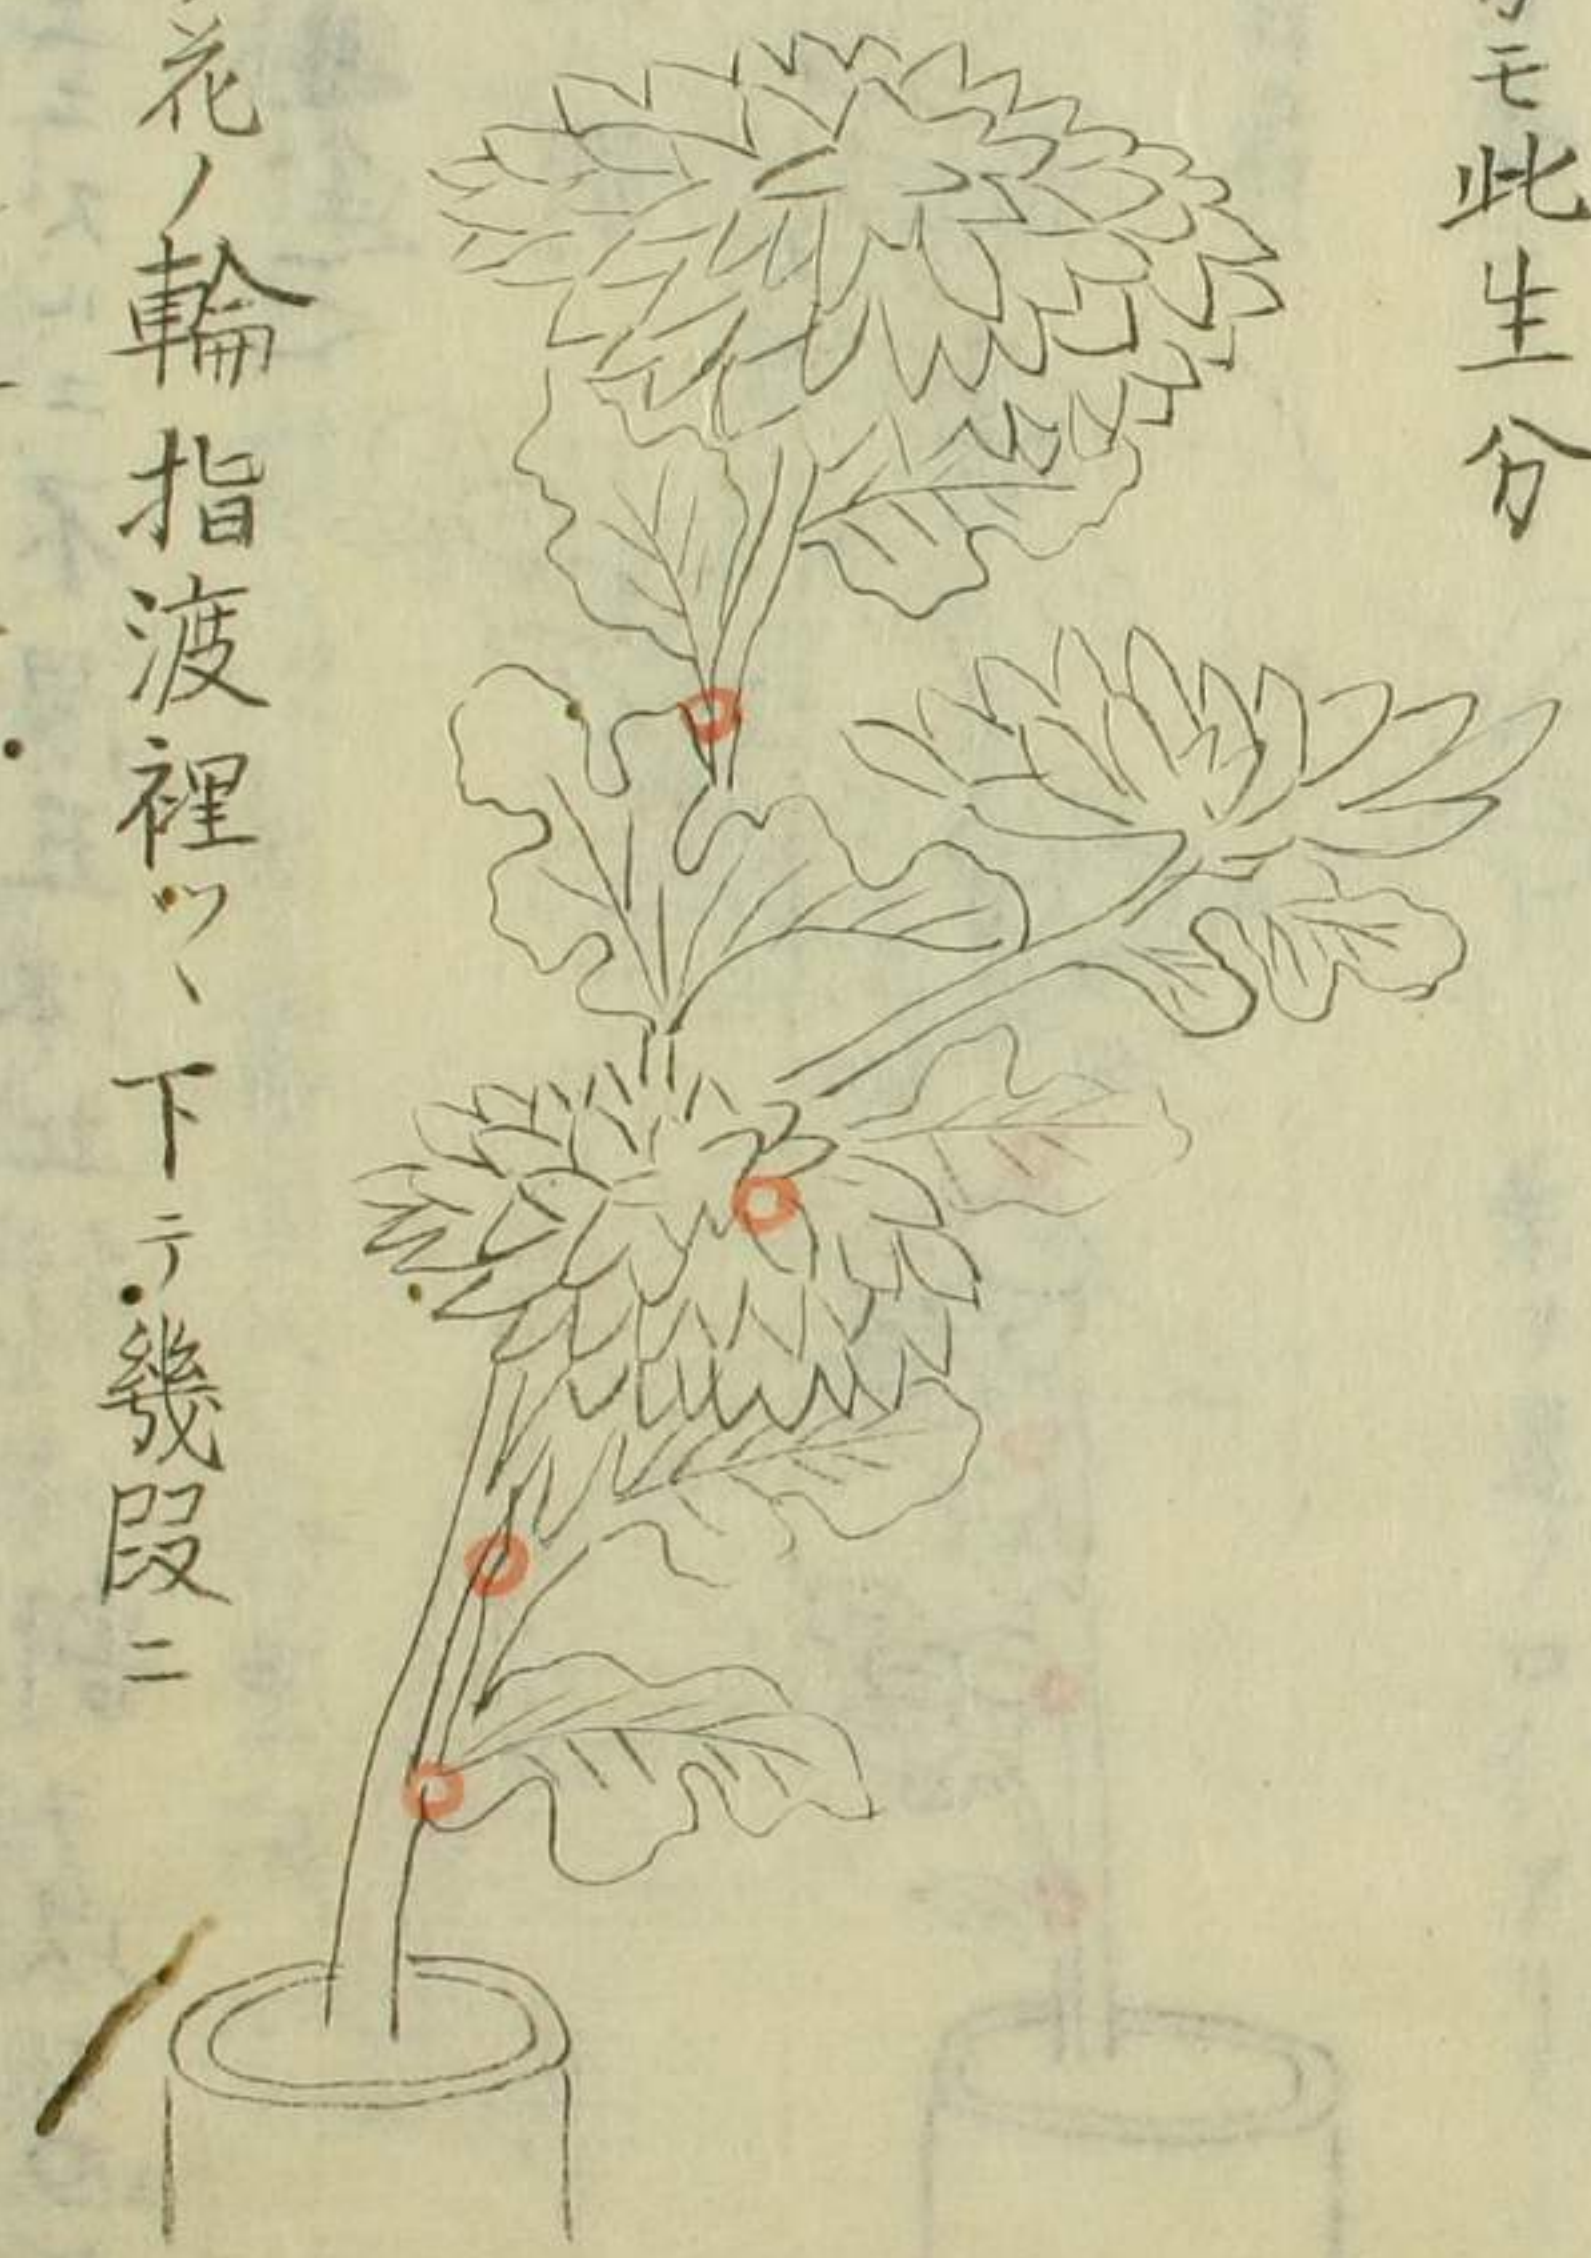 モ此生分
花ノ輪指渡裡ツヽ下テ幾段ニ